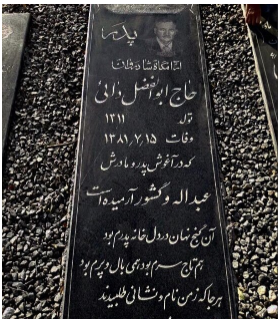 پدر
آرامگاه شادروان
حاج ابوالفضل ذاتی
تولد ۱۳۱۱
وفات ۱۳۸۱,۷,۱۵
که در آغوش پدر و مادرش
عبداله و کشور آرمیده است
آن گنج نهان در دل خانه پدرم بود
هم تاج سرم بود همی بال و پرم بود
هر جا که ز من نام و نشانی طلبیدند